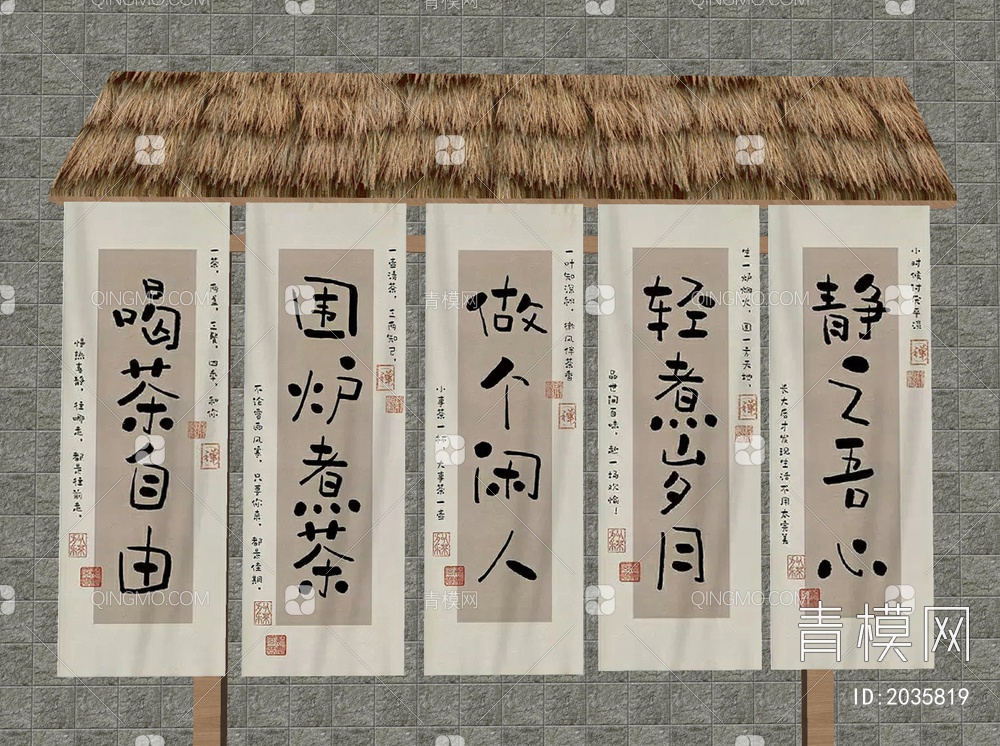 一茶，两盏，三餐，四季，和你
喝茶自由
往哪走，都是往前走。
一壶清茶，三两知己，
围炉煮茶
不论雪雨风寒，只要你来，都是佳期。
一叶知深秋，微风伴茶香
做个闲人
小事茶一杯，大事茶一壶
生一炉烟火，围一方天地，
轻煮岁月
品世间百味，赴一场欢愉！
静之吾心
长大后才发现生活不用太完美
禅
青模网
QINGMO.COM
青模网
ID:2035819